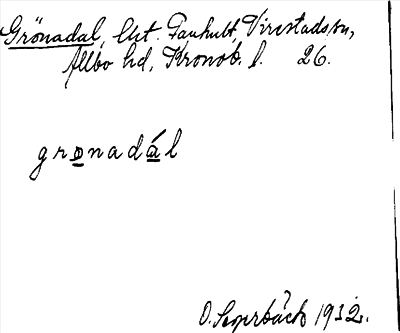 Grönadal, lht. Fanhult, Virestads sn,
Allbo hd, Kronob. l. 26.
gronadál
O. 1932.